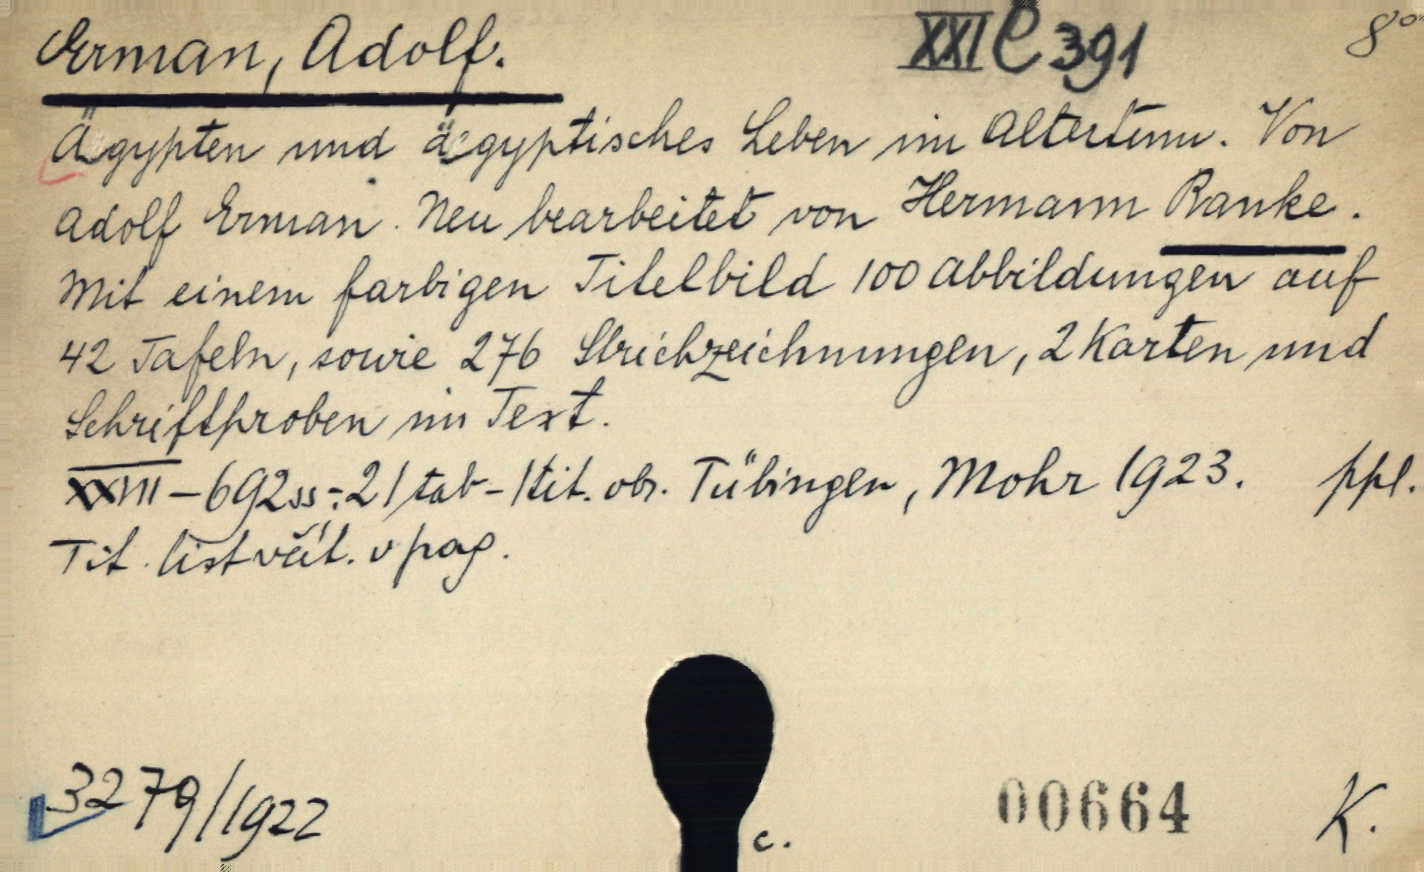 Erman, Adolf. XXI C 391 8°
Ägypten und ägyptisches Leben im Altertum. Von
Adolf Erman. Neu bearbeitet von Hermann Ranke.
Mit einem farbigen Titelbild 100 Abbildungen auf
42 Tafeln, sowie 276 Strichzeichnungen, 2 Karten und
Schriftproben im Text.
XXVIII – 692 ss ÷ 21 tab – 1 tit. obr. Tübingen, Mohr 1923. ppl.
Tit. list včít. v pag.
3279/1922 00664 K.
c.